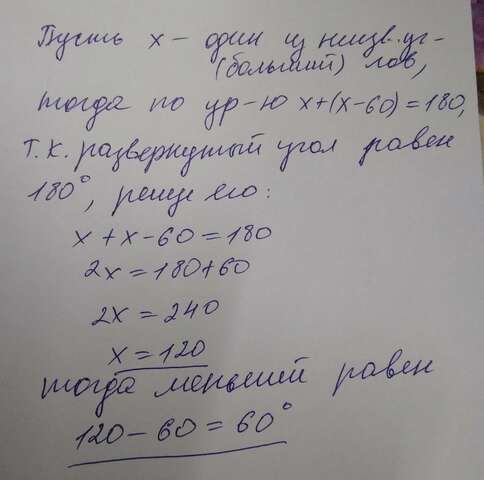 Пусть x – один из неизв. уг-
(больший) лов,
тогда по ур-ю x+(x-60)=180,
т.к. развернутый угол равен
180°, реще его:
x+x-60=180
2x=180+60
2x=240
x=120
тогда меньший равен
120-60=60°